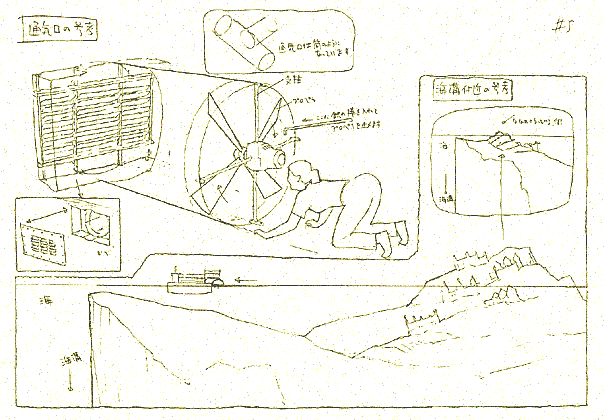 通気口の考察
#5
通気口は筒のように
なっています
支柱
プロペラ
ここに鉄の棒を入れて
プロペラを止めます
海溝付近の考察
海
海溝
海
海溝